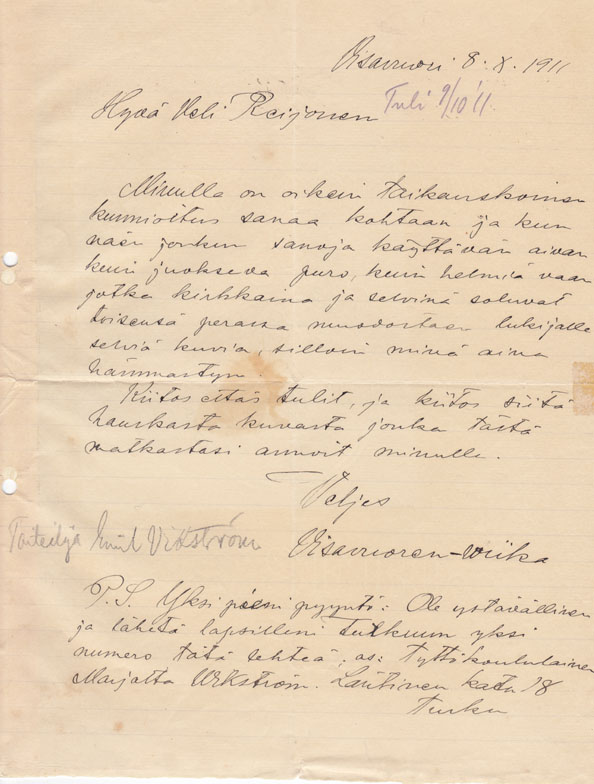 Visavuori 8. X. 1911
Tuli 9/10 11
Hyvä Veli Reijonen
Minulla on oikein taikauskoinen
kunnioitus sanaa kohtaan ja kun
näen jonkun sanoja käyttävän aivan
kuin juokseva puro, kuin helmiä vaan
jotka kirkkaina ja selvinä soluvat
toisensa perässä muodostaen lukijalle
selviä kuvia, silloin minä aina
hämmästyn.
Kiitos ettäs tulit, ja kiitos siitä
hauskasta kuvasta jonka tästä
matkastasi annoit minulle.
Veljes
Taiteilija Emil Vikström
Visavuoren-wiika
P.S. Yksi pieni pyyntö: Ole ystävällinen
ja lähetä lapsilleni Turkuun yksi
numero tätä lehteä, os: Tyttökoululainen
Marjatta Wikström. Läntinen katu 18
Turku